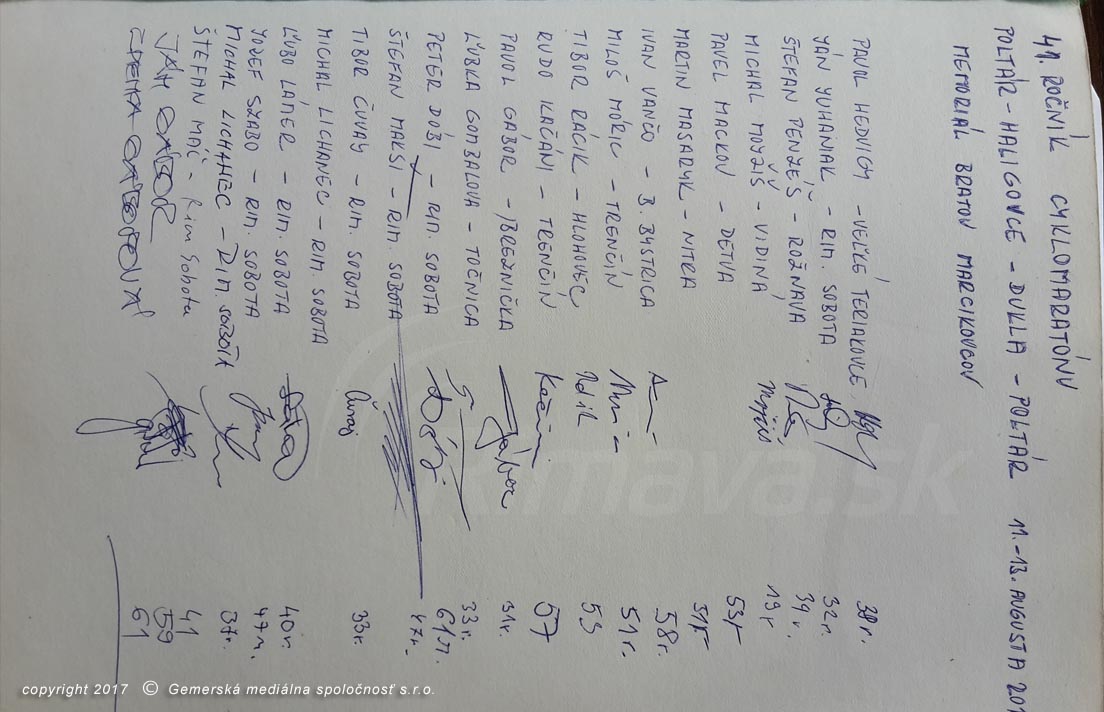 41. ROČNÍK CYKLOMARATÓNU
POLTÁR - HALIGOVCE - DUKLA - POLTÁR 11.-13. AUGUSTA 201
MEMORIÁL BRATOV MARCIKOVCOV
PAVOL HEDVIGY - VEĽKÉ TERIAKOVCE 38 r.
JÁN JUHANIAK - RIM. SOBOTA 32 r.
ŠTEFAN PENZEŠ - ROŽŇAVA 34 r.
MICHAL MOJŽIŠ - VIDINÁ 19 r
PAVEL MACKOV - DETVA 53 r
MARTIN MASARYK - NITRA 51 r
IVAN VANČO - B. BYSTRICA 58 r.
MILOŠ MÓRIC - TRENČÍN 51 r.
TIBOR RÁCIK - HLOHOVEC 53
RUDO KAČÁNI - TRENČÍN 57
PAVOL GÁBOR - BREZNIČKA Gábor 31 r.
ĽUBKA GOMBALOVA - TOČNICA 33 r.
PETER DÓBI - RIM. SOBOTA Dóbi 61 r.
ŠTEFAN MAKSI - RIM. SOBOTA 47 r.
TIBOR ČUVAJ - RIM. SOBOTA Čuvaj 33 r.
MICHAL LICHANEC - RIM. SOBOTA
ĽUBO LÁMER - RIM. SOBOTA 40 r.
JOZEF SZABO - RIM. SOBOTA 47 r.
MICHAL LICHANEC - RIM. SOBOTA 37 r.
ŠTEFAN MÁČ - Rim Sobota 41
JÁN 59
61
rimava.sk
copyright 2017 © Gemerská mediálna spoločnosť s.r.o.